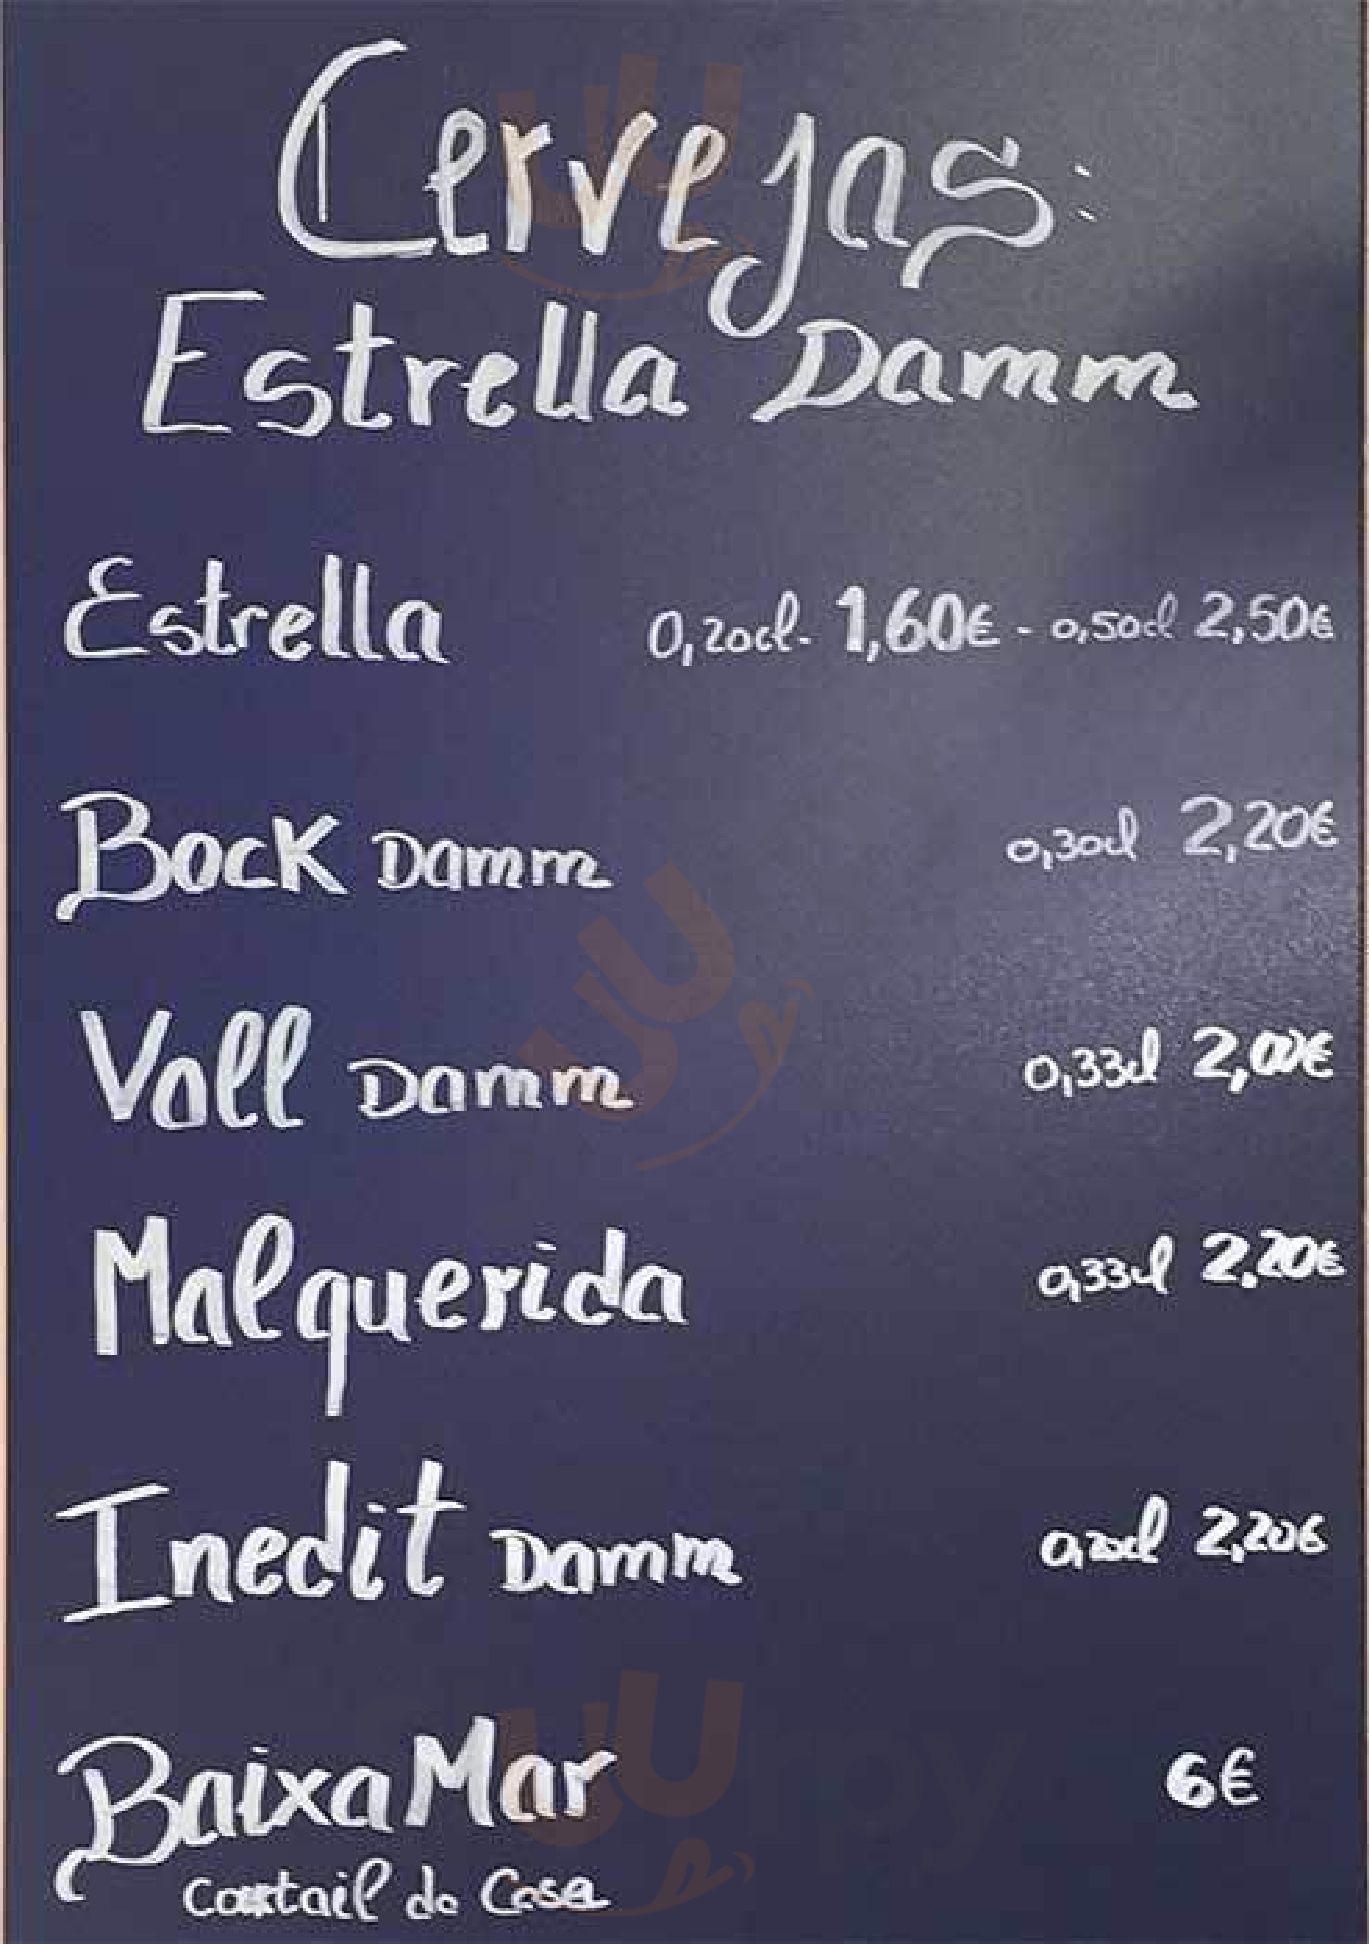 Cervejas:
Estrella Damm
Estrella 0,20cl- 1,60€ - 0,50cl 2,50€
Bock Damm 0,30cl 2,20€
Voll Damm 0,33cl 2,00€
Malquerida 0,33cl 2,20€
Inedit Damm 0,20cl 2,20€
BaixaMar 6€
da Casa